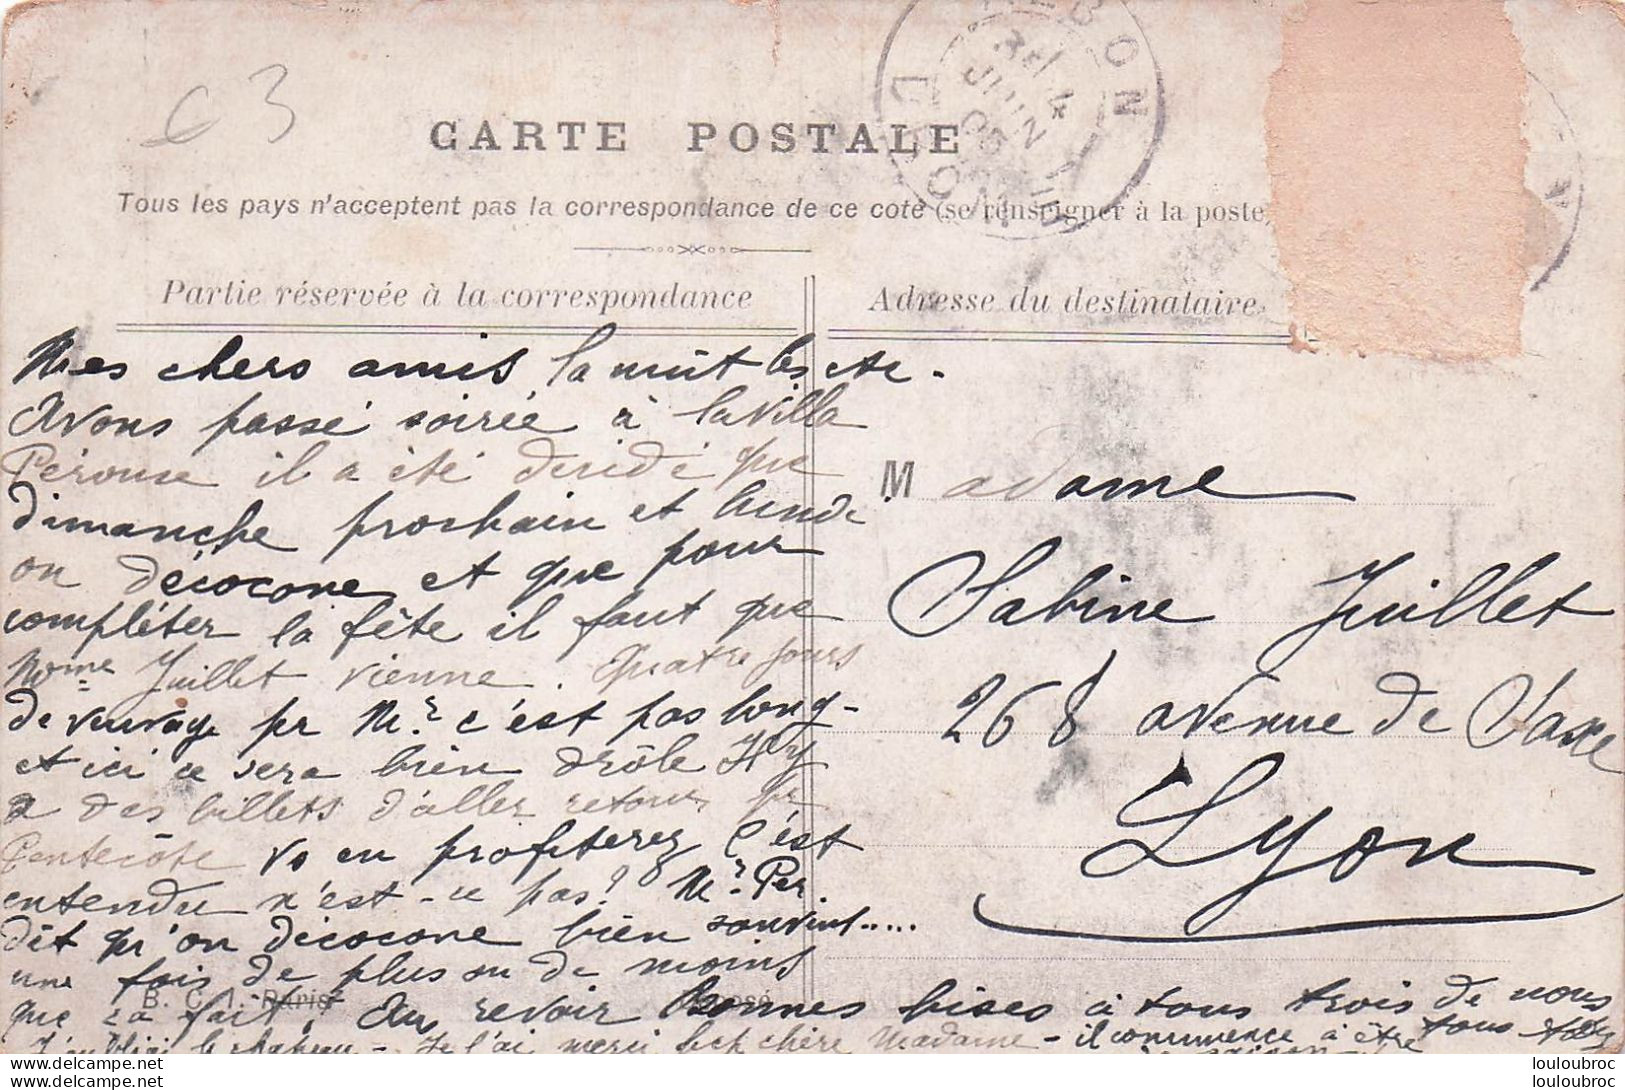 63
CARTE POSTALE
Tous les pays n'acceptent pas la correspondance de ce coté (se renseigner à la poste)
Partie réservée à la correspondance
Adresse du destinataire
BON
JUIN
Mes chers amis la nuit
Avons passé soirée à la villa
Pérouse il a été décidé que
dimanche prochain et lundi
on décocone et que pour
compléter la fête il faut que
Mme Juillet vienne. Quatre jours
de veuvage pr Mr. c'est pas long-
et ici ce sera bien drôle Il y
a des billets d'aller retour pr
Pentecôte vs en profiterez c'est
entendu n'est-ce pas? Mr. Per
dit qu'on décocone bien souvent.....
une fois de plus ou de moins
que ça fait. Au revoir Bonnes bises à tous trois de nous tous
J'oubliai le chapeau - Je l'ai merci bcp chère Madame - il commence à être
Madame
Sabine Juillet
268 avenue de Saxe
Lyon
B. C. I. Paris
louloubroc
louloubroc